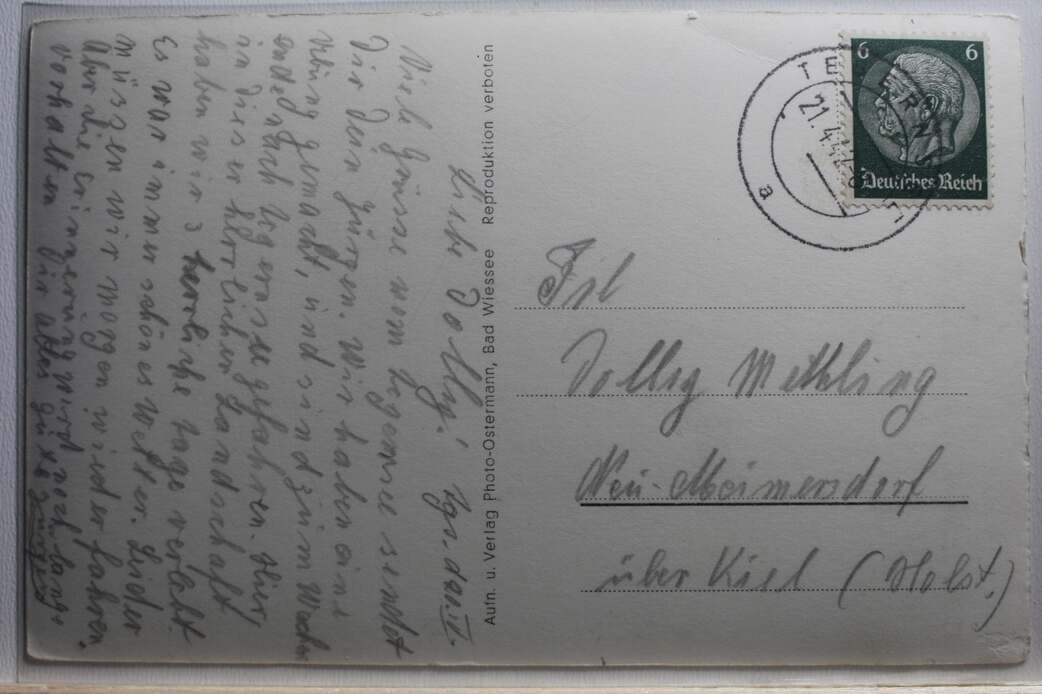 6 6
Deutsches Reich
TEGERNSEE
21.4.
a
Liebe Dolly! Tgr. d.
Viele Grüsse vom Tegernsee sendet
Dir Dein Jürgen. Wir haben eine
gemacht, und sind zum
nach Tegernsee gefahren. Hier,
in dieser herrlichen Landschaft
haben wir 3 herrliche Tage verlebt
Es war immer schönes Wetter. Leider
müssen wir morgen wieder fahren.
Aber die Erinnerung wird noch lange
vorhalten. Dir alles gute Jürgen
Aufn. u. Verlag Photo-Ostermann, Bad Wiessee Reproduktion verboten
Frl
Dolly Methling
Neu-Meimersdorf
über Kiel (Holst.)